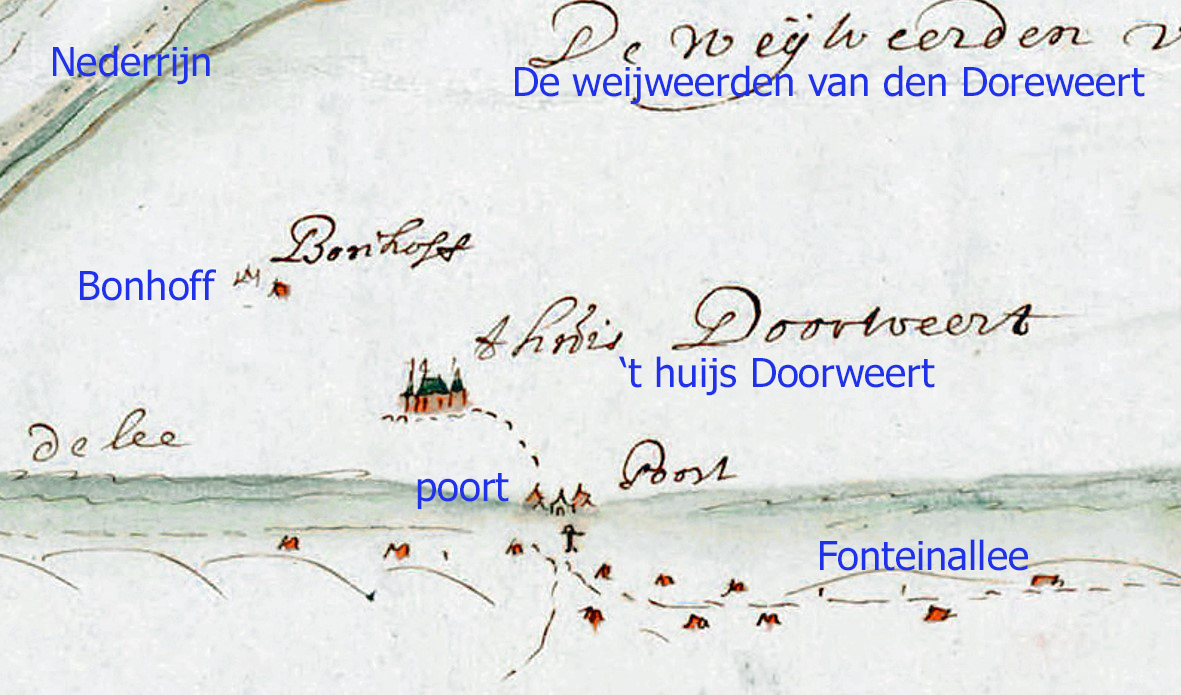 De weijweerden v
Nederrijn
De weijweerden van den Doreweert
Bonhoff
Bonhoff
t huis Doorweert
‘t huijs Doorweert
de lee
Poort
poort
Fonteinallee